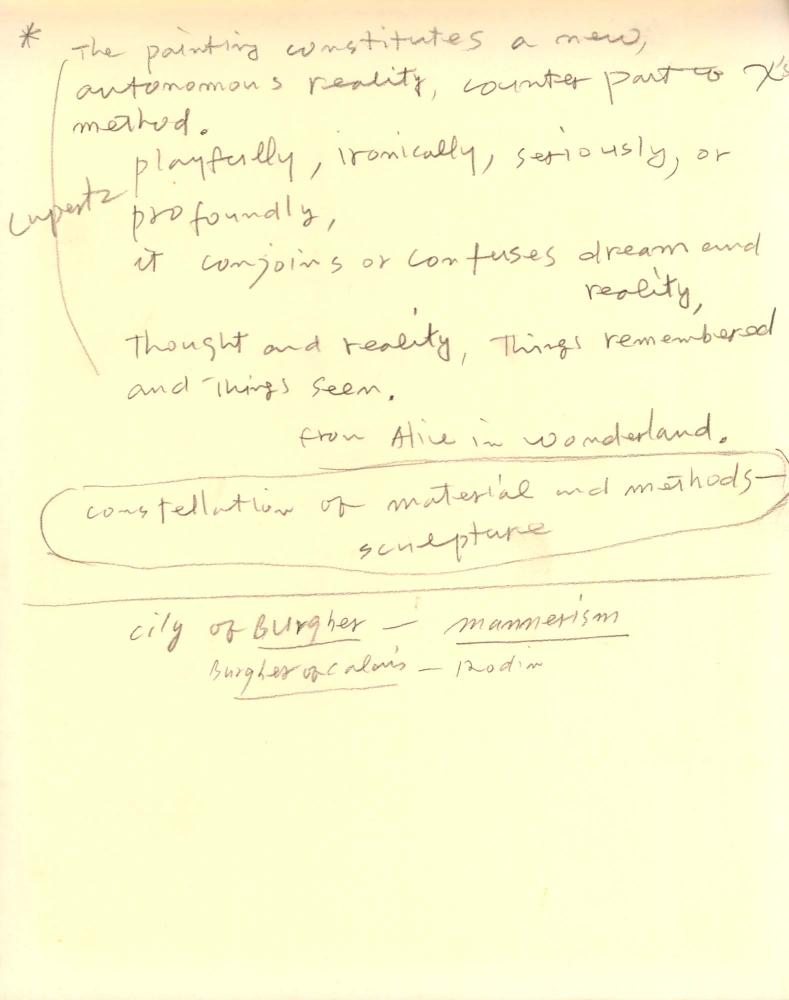 * The painting constitutes a new,
autonomous reality, counter part to X's
method.
playfully, ironically, seriously, or
Lupertz profoundly,
it conjoins or confuses dream and
reality,
Thought and reality, Things remembered
and Things seen.
from Alice in wonderland.
constellation of material and methods—
sculpture
city of Burgher — mannerism
Burgher of Calais — Rodin